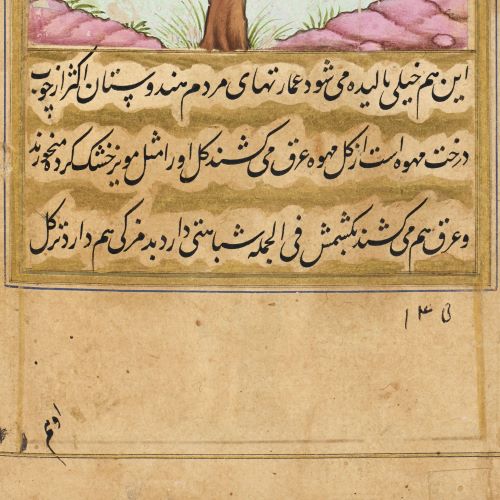 این هم خیلی بالیده می شود عمارتهای مردم هندوستان اکثر از چوب
درخت مهوه است از گل مهوه عرق می کشند گل او را مثل مویز خشک کرده میخورند
و عرق هم می کشند بکشمش فی الجمله شباهتی دارد بدمزکی هم دارد تر گل